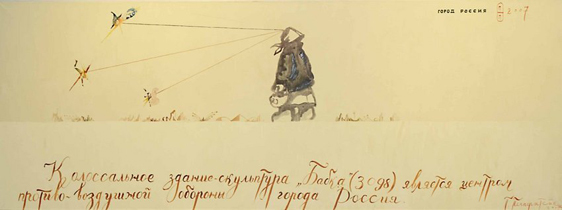 ГОРОД РОССИЯ 2007
Колоссальное здание-скульптура „Бабка” (3098) является центром
противо-воздушной обороны города Россия.